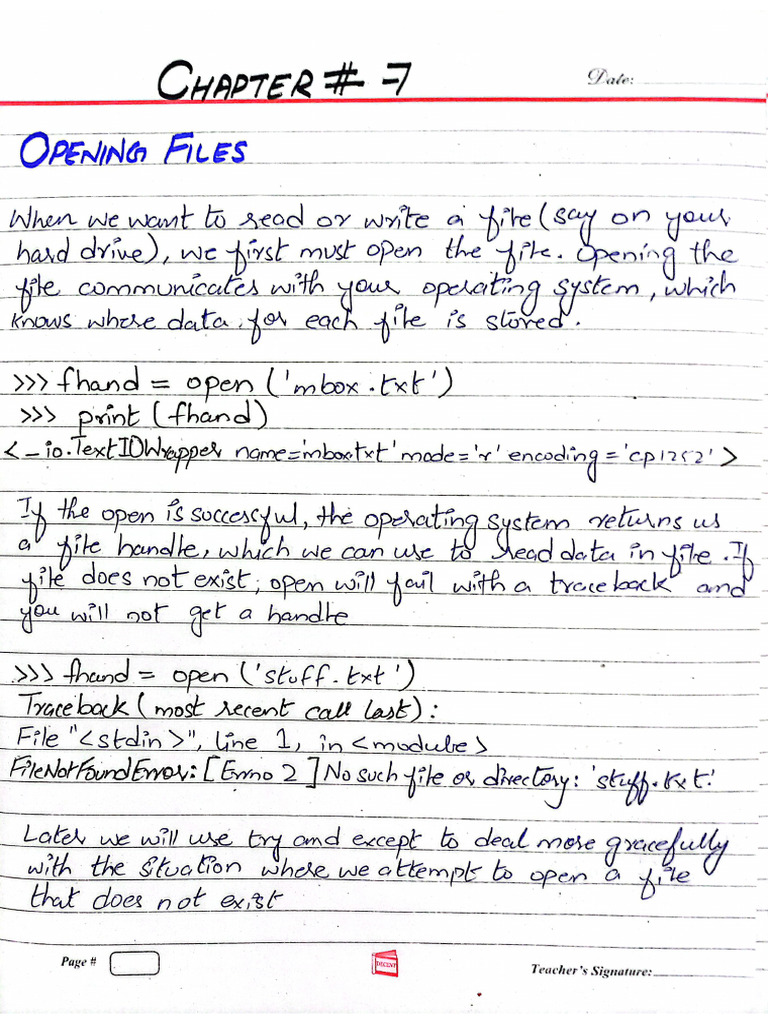 CHAPTER # 7
Date:
OPENING FILES
When we want to read or write a file (say on your
hard drive), we first must open the file. Opening the
file communicates with your operating system, which
knows where data for each file is stored.
>>> fhand = open ('mbox.txt')
>>> print (fhand)
<_io.TextIOWrapper name='mbox.txt' mode='r' encoding='cp1252'>
If the open is successful, the operating system returns us
a file handle, which we can use to read data in file. If
file does not exist, open will fail with a traceback and
you will not get a handle
>>> fhand = open ('stuff.txt')
Traceback (most recent call last):
File "<stdin>", line 1, in <module>
FileNotFoundError: [Errno 2] No such file or directory: 'stuff.txt'
Later we will use try and except to deal more gracefully
with the situation where we attempt to open a file
that does not exist
Page #
DECENT
Teacher's Signature: